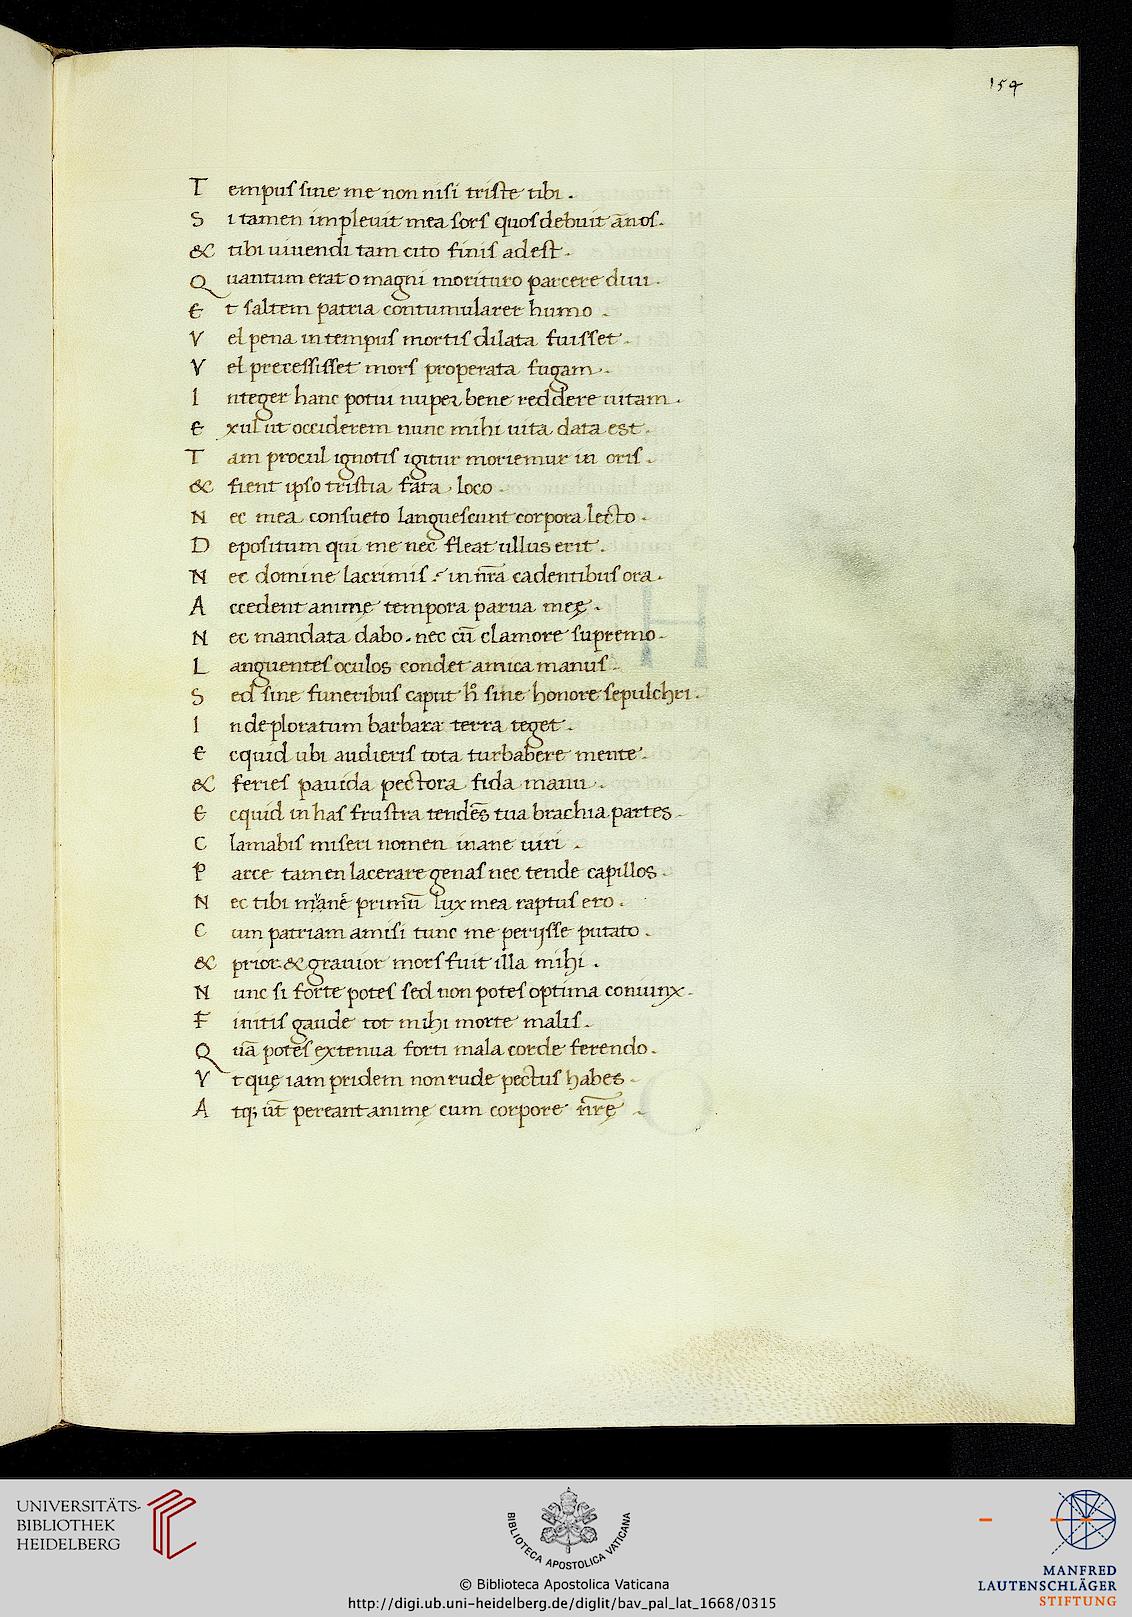 154
T empus sine me non nisi triste tibi .
S i tamen impleuit mea sors quos debuit ān̄os .
& tibi uiuendi tam cito finis adest .
Q uantum erat o magni morituro parcere diui .
E t saltem patria contumularer humo .
V el pena in tempus mortis dilata fuisset .
V el precessisset mors properata fugam .
I nteger hanc potui nuper bene reddere uitam .
E xul ut occiderem nunc mihi uita data est .
T am procul ignotis igitur moriemur in oris .
& fient ipso tristia fata loco .
N ec mea consueto languescunt corpora lecto .
D epositum qui me nec fleat ullus erit .
N ec domine lacrimis in nr̄a cadentibus ora .
A ccedent animę tempora parua meę .
N ec mandata dabo . nec cū clamore supremo .
L anguentes oculos condet amica manus .
S ed sine funeribus caput h° sine honore sepulchri .
I ndeploratum barbara terra teget .
E cquid ubi audieris tota turbabere mente .
& feries pauida pectora fida manu .
E cquid in has frustra tendēs tua brachia partes .
C lamabis miseri nomen inane uiri .
P arce tamen lacerare genas nec tende capillos .
N ec tibi primū lux mea raptus ero .
C um patriam amisi tunc me perijsse putato .
& prior & grauior mors fuit illa mihi .
N unc si forte potes sed non potes optima coniunx .
F initis gaude tot mihi morte malis .
Q uā potes extenua forti mala corde ferendo .
V t quę iam pridem non rude pectus habes .
A tq; ut̄ pereant animę cum corpore nr̄ę .
UNIVERSITÄTS-
BIBLIOTHEK
HEIDELBERG
BIBLIOTECA APOSTOLICA VATICANA
© Biblioteca Apostolica Vaticana
http://digi.ub.uni-heidelberg.de/diglit/bav_pal_lat_1668/0315
MANFRED
LAUTENSCHLÄGER
STIFTUNG